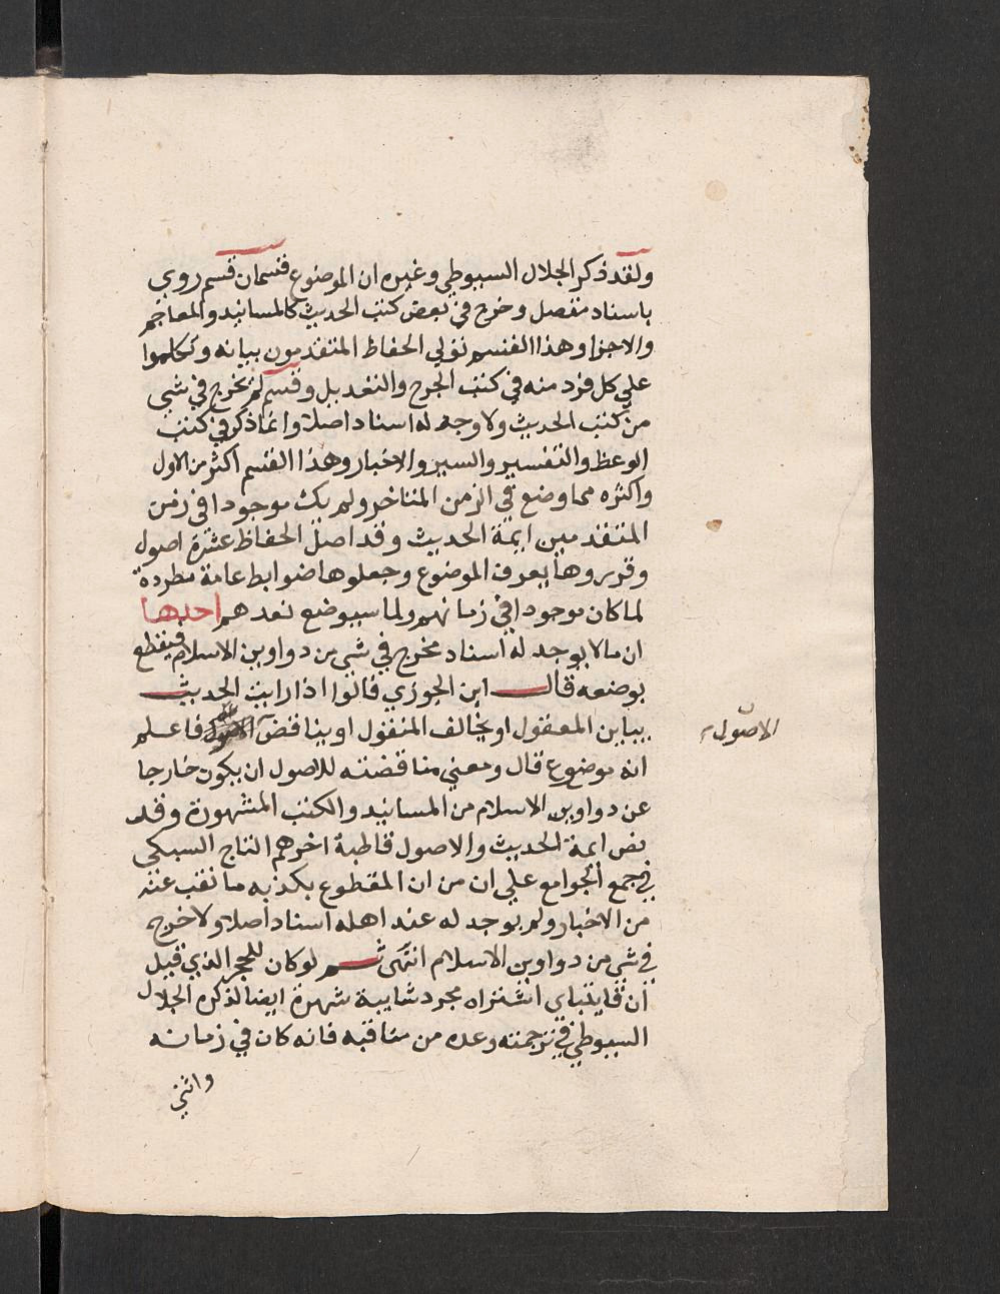 ولقد ذكر الجلال السيوطي وغيره ان الموضوع قسمان قسم روي
باسناد متصل وخرج في بعض كتب الحديث كالمسانيد والمعاجم
والاجزا وهذا القسم تولي الحفاظ المتقدمون ببيانه وتكلموا
علي كل فرد منه في كتب الجرح والتعديل وقسم لم يخرج في شي
من كتب الحديث ولا وجد له اسناد اصلا وانما ذكر في كتب
الوعظ والتفسير والسير والاخبار وهذا القسم اكثر من الاول
واكثره مما وضع في الزمن المتاخر ولم يك موجودا في زمن
المتقدمين ايمة الحديث وقد اصل الحفاظ عشرة اصول
وقرروها يعرف الموضوع وجعلوها ضوابط عامة مطردة
لما كان موجودا في زمانهم ولما سيوضع بعدهم احدها
ان ما لا يوجد له اسناد مخرج في شي من دواوين الاسلام فيقطع
بوضعه قال ابن الجوزي قالوا اذا رايت الحديث
يباين المعقول او يخالف المنقول او يناقض فاعلم
الاصول
انه موضوع قال ومعني مناقضته للاصول ان يكون خارجا
عن دواوين الاسلام من المسانيد والكتب المشهورة وقد
نص ايمة الحديث والاصول قاطبة اخرهم التاج السبكي
في جمع الجوامع علي ان من ان المقطوع بكذبه ما نقب عنه
من الاخبار ولم يوجد له عند اهله اسناد اصلا ولا خرج
في شي من دواوين الاسلام انتهى ثم لو كان للحجر الذي قيل
ان قايتباي اشتراه مجرد شايبة شهرة ايضا لذكره الجلال
السيوطي في ترجمته وعده من مناقبه فانه كان في زمانه
واثني